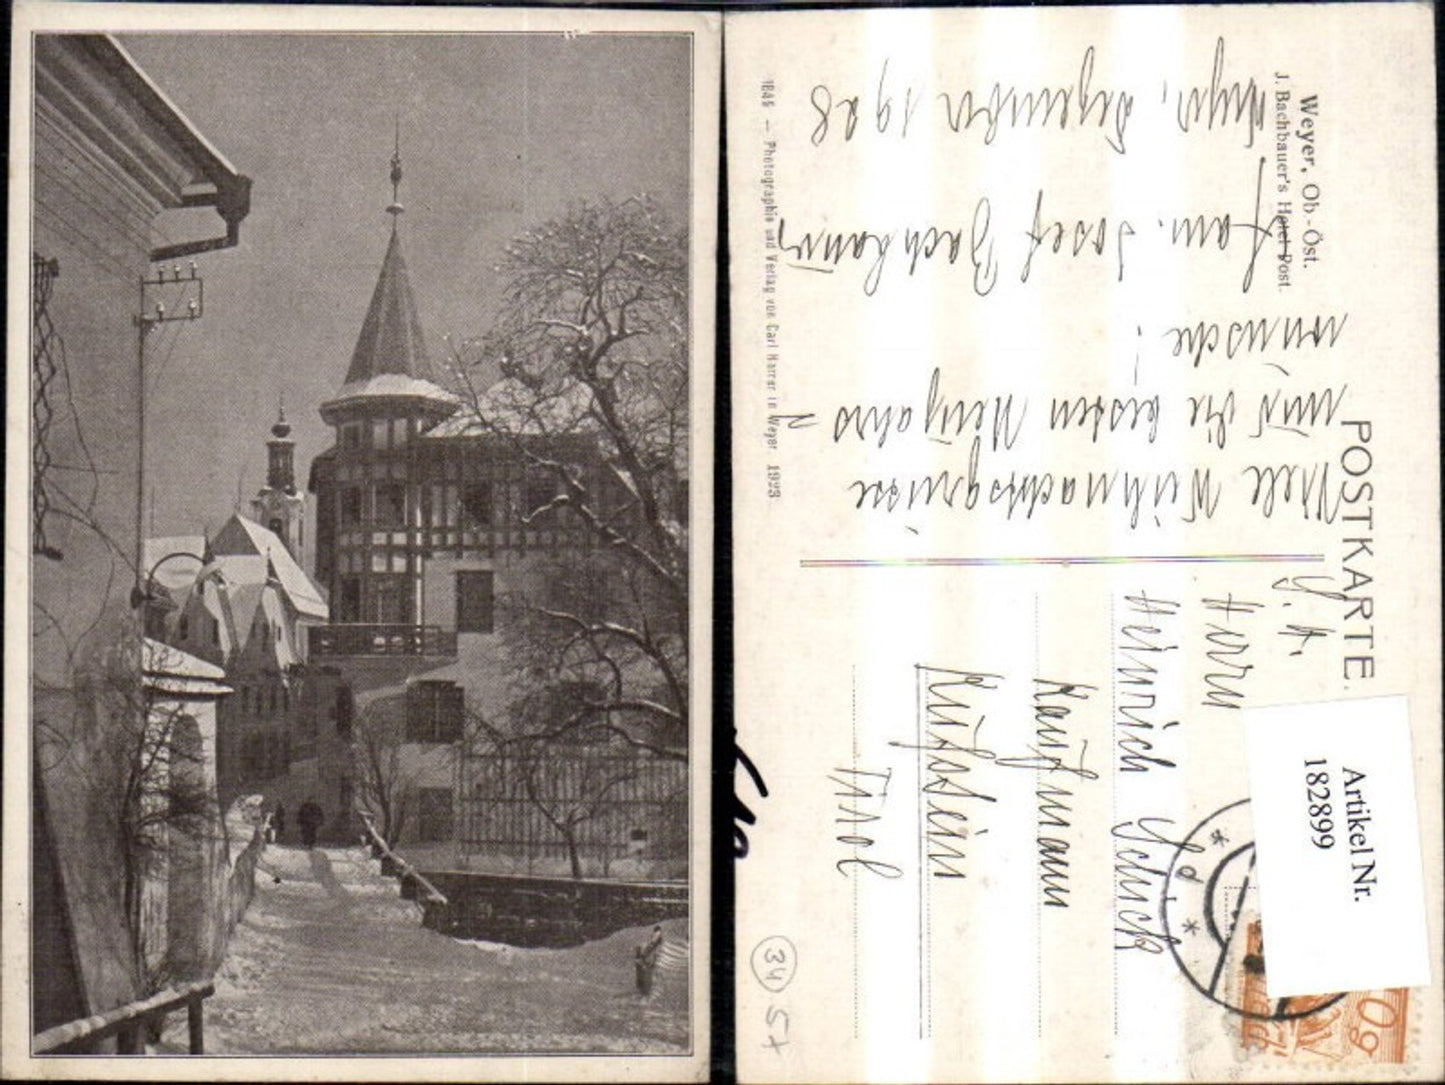 Weyer, Ob.-Öst.
J. Bachbauer's Hotel Post.
POSTKARTE.
Viele Weihnachtsgrüsse
und die besten Neujahrs
wünsche!
Fam. Josef Bachbauer
Weyer, Dezember 1928
S. H.
Herrn
Heinrich Schuck
Kaufmann
Kufstein
Tirol
1845 — Photographie und Verlag von Carl Harrer in Weyer 1923.
Artikel Nr.
182899
34
57